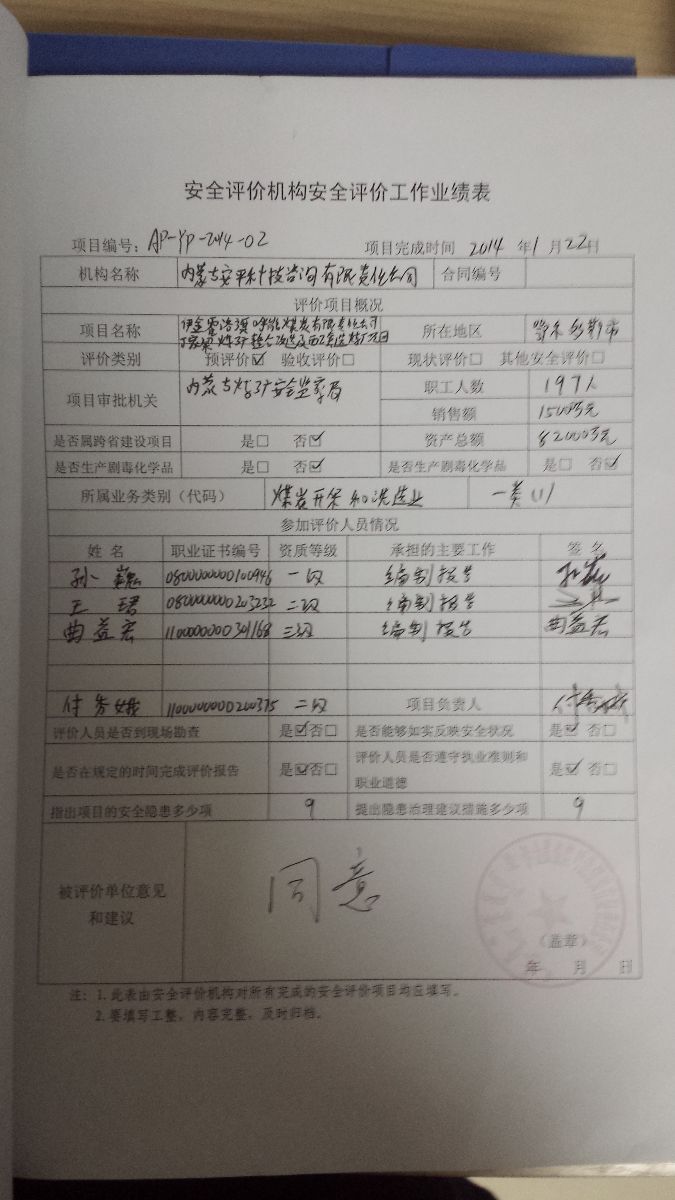 安全评价机构安全评价工作业绩表
项目编号：AP-YP-2014-02 项目完成时间 2014 年 1 月 22 日
机构名称 内蒙古安平科技咨询有限责任公司 合同编号
评价项目概况
项目名称 伊金霍洛旗 煤炭有限责任公司 所在地区 鄂尔多斯市
丁家渠煤矿整合改造及配套选煤厂项目
评价类别 预评价☑ 验收评价□ 现状评价□ 其他安全评价□
项目审批机关 内蒙古煤矿安全监察局 职工人数 197人
销售额 1500万元
是否属跨省建设项目 是□ 否☑ 资产总额 82000万元
是否生产剧毒化学品 是□ 否☑ 是否生产剧毒化学品 是□ 否☑
所属业务类别（代码） 煤炭开采和洗选业 一类(1)
参加评价人员情况
姓 名 职业证书编号 资质等级 承担的主要工作 签 名
孙巍 0800000000100946 一级 编制报告
王珺 0800000000203232 二级 编制报告
曲益宏 1100000000301168 三级 编制报告 曲益宏
付 娥 1100000000200375 二级 项目负责人
评价人员是否到现场勘查 是☑否□ 是否能够如实反映安全状况 是☑ 否□
是否在规定的时间完成评价报告 是☑否□ 评价人员是否遵守执业准则和
职业道德 是☑ 否□
指出项目的安全隐患多少项 9 提出隐患治理建议措施多少项 9
被评价单位意见
和建议
同意
（盖章）
年 月 日
注：1.此表由安全评价机构对所有完成的安全评价项目均应填写。
2.要填写工整，内容完整，及时归档。